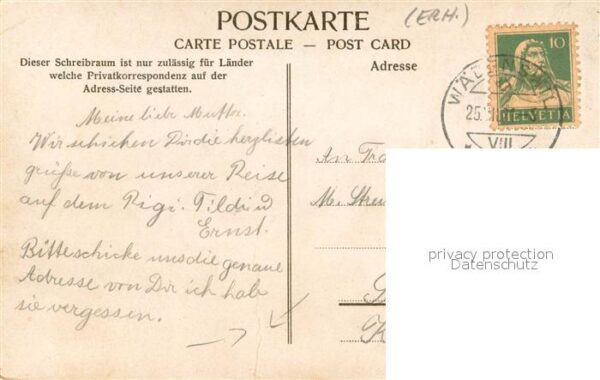 POSTKARTE
(ERH.)
CARTE POSTALE — POST CARD
Dieser Schreibraum ist nur zulässig für Länder
welche Privatkorrespondenz auf der
Adress-Seite gestatten.
Adresse
10
HELVETIA
WÄDENSWIL
25.
VIII
Meine liebe Mutter.
Wir schicken Dir die herzlisten
grüße von unserer Reise
auf dem Rigi. Tildi u
Ernst.
Bitte schicke uns die genaue
Adresse von Dir ich hab
sie vergessen.
An
M.
privacy protection
Datenschutz